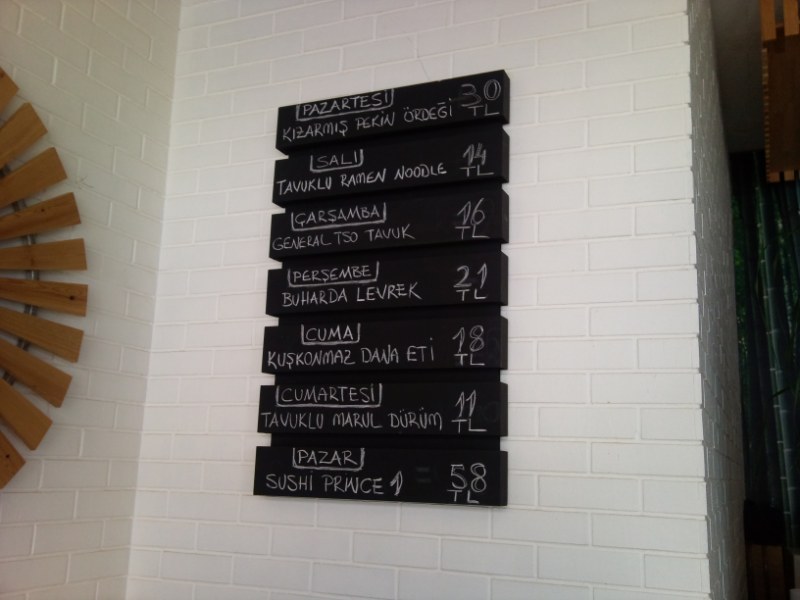 PAZARTESİ
KIZARMIŞ PEKİN ÖRDEĞİ 30 TL
SALI
TAVUKLU RAMEN NOODLE 14 TL
ÇARŞAMBA
GENERAL TSO TAVUK 16 TL
PERŞEMBE
BUHARDA LEVREK 21 TL
CUMA
KUŞKONMAZ DANA ETİ 18 TL
CUMARTESİ
TAVUKLU MARUL DÜRÜM 11 TL
PAZAR
SUSHI PRINCE 1 = 58 TL